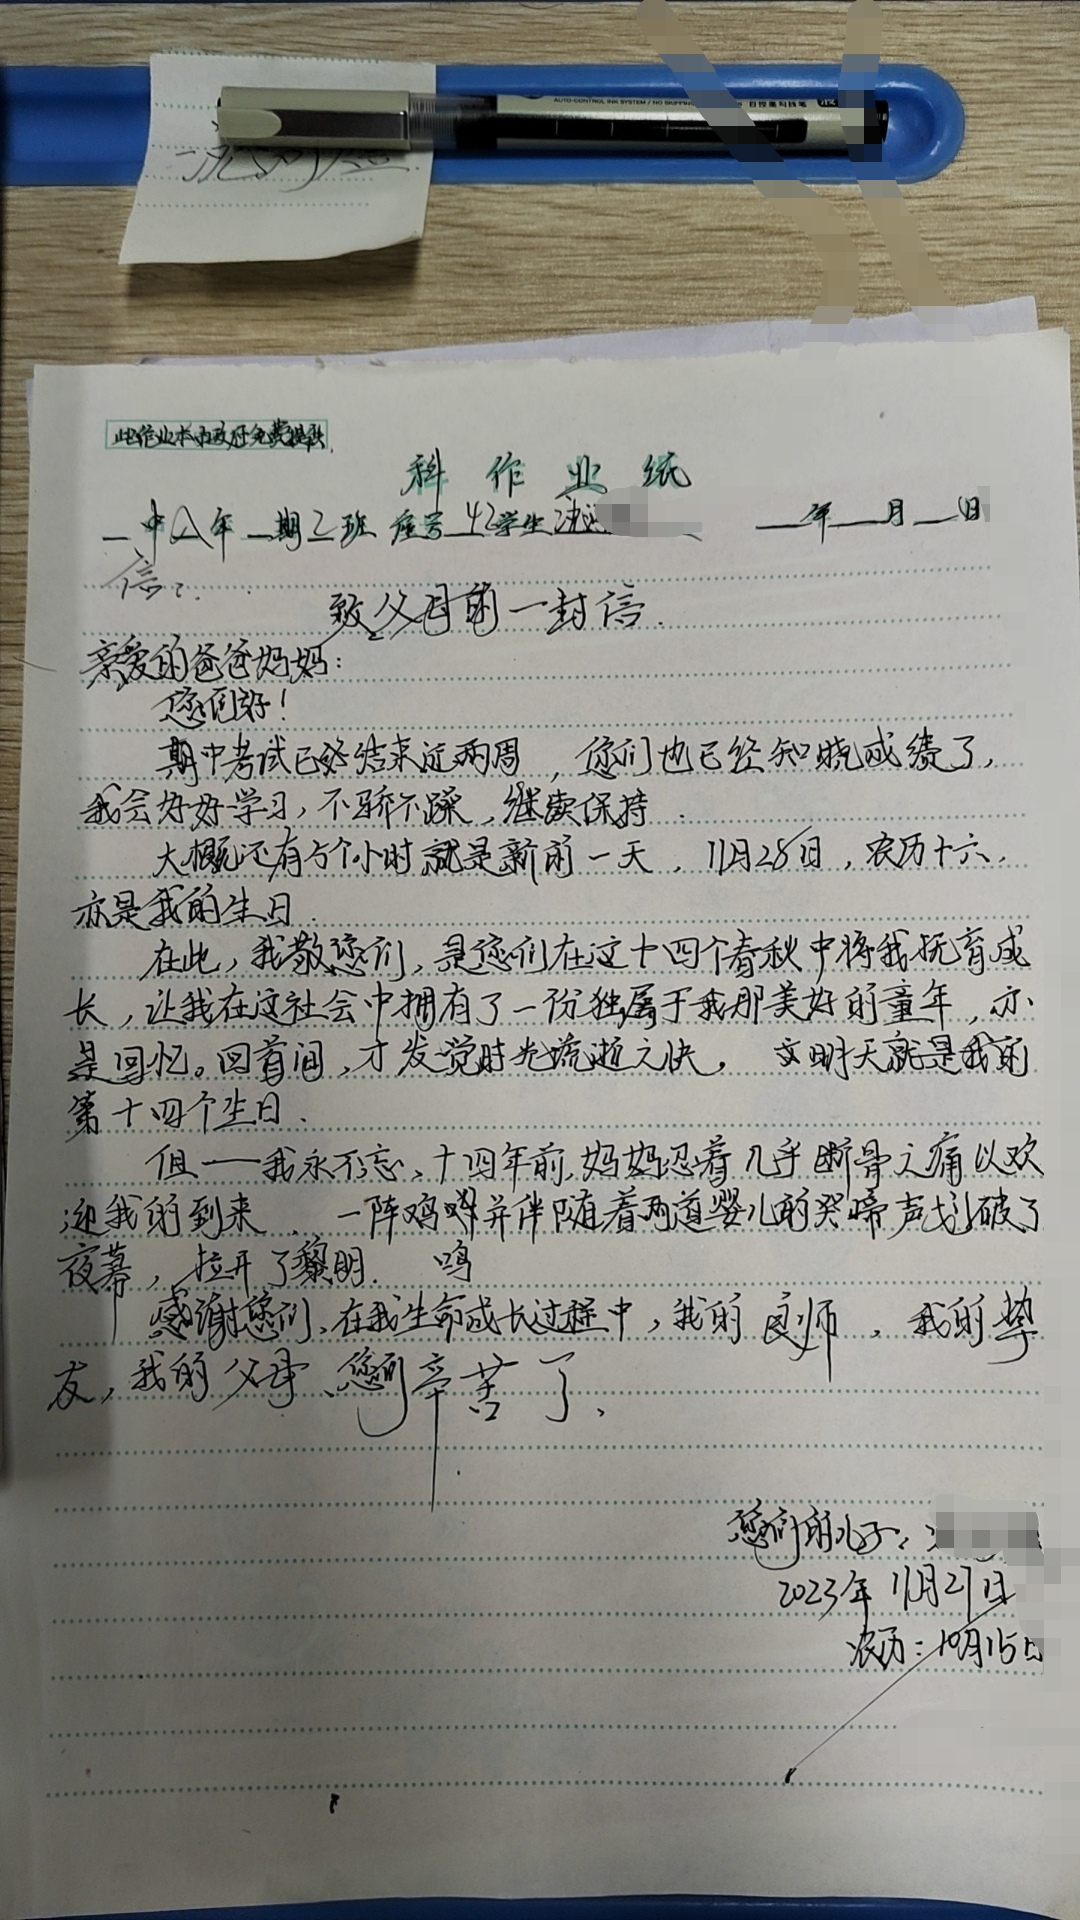 AUTO-CONTROL INK SYSTEM / NO SKIPPING
此作业本市政府免费提供
科作业纸
中八年 期2班 座号 42 学生 年 月 日
信:
致父母的一封信.
亲爱的爸爸妈妈:
您们好!
期中考试已经结束近两周,您们也已经知晓成绩了,
我会好好学习,不骄不躁,继续保持.
大概还有5个小时就是新的一天,11月28日,农历十六,
亦是我的生日.
在此,我敬您们,是您们在这十四个春秋中将我抚育成
长,让我在这社会中拥有了一份独属于我那美好的童年,亦
是回忆。回首间,才发觉时光流逝之快, 明天就是我的
第十四个生日.
但——我永不忘,十四年前,妈妈忍着几乎断骨之痛以欢
迎我的到来,一阵鸡鸣并伴随着两道婴儿的哭啼声划破了
夜幕,拉开了黎明. 鸣
感谢您们,在我生命成长过程中,我的良师,我的挚
友,我的父母、您们辛苦了,
您们的儿子:
2023年11月27日
农历:10月15日